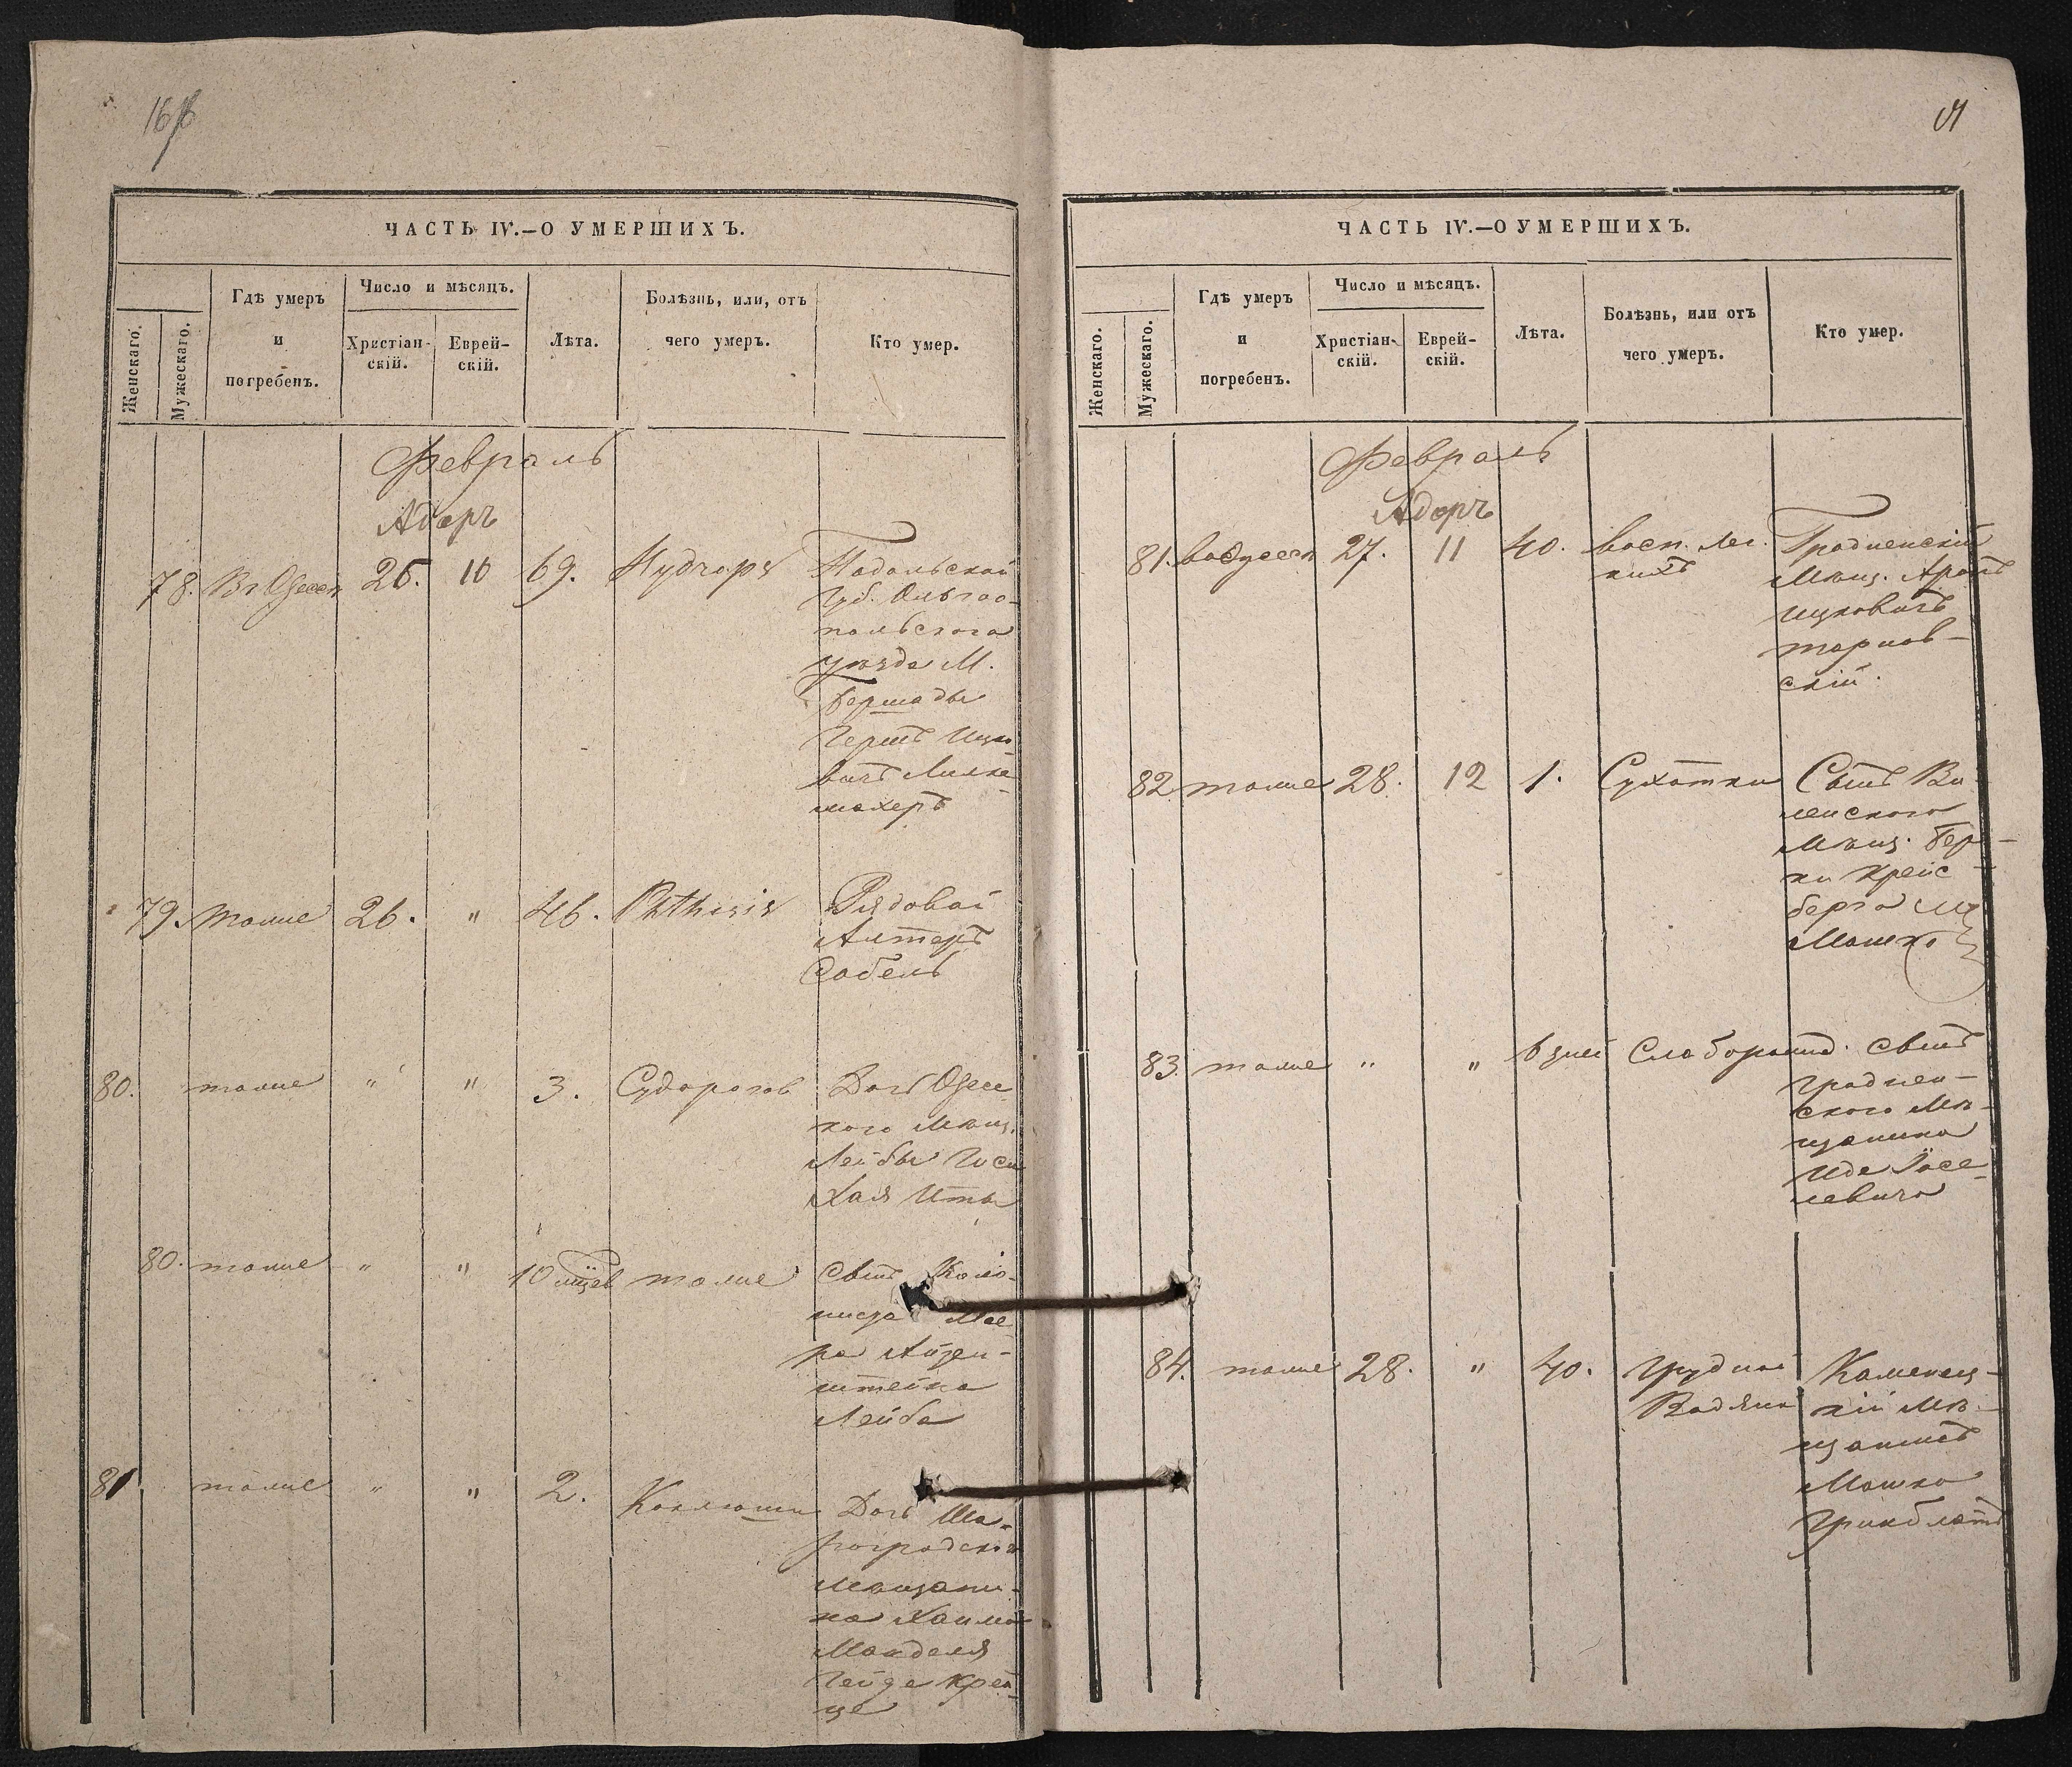 ЧАСТЬ IV.—О УМЕРШИХЪ.
Женскаго.
Мужескаго.
Гдѣ умеръ
и
погребенъ.
Число и мѣсяцъ.
Христіан-
скій.
Еврей-
скій.
Лѣта.
Болѣзнь, или, отъ
чего умеръ.
Кто умер.
Февраль
Адаръ
78. Въ Одессѣ 25. 10 69.
Подольской
Губ. Ольго-
польского
уѣзда М.
Бершады
Гершъ Ицко-
вичъ
махеръ
79. тоже 26. " 46. Phthisis Рядовой
Алтеръ
Сабель
80. тоже " " 3. Судорогов Дочь Одес
кого Мѣщ.
Лейбы
Хая Итта
80. тоже " " 10 мцев тоже Сынъ Коло-
ниста Мее-
ра Айзен-
штейна
Лейба
81. тоже " " 2. Коклюши Дочь Ша-
ргородского
Мѣщани-
на Хаима
Манделя
Гейде Крей-
це
ЧАСТЬ IV.—О УМЕРШИХЪ.
Женскаго.
Мужескаго.
Гдѣ умеръ
и
погребенъ.
Число и мѣсяцъ.
Христіан-
скій.
Еврей-
скій.
Лѣта.
Болѣзнь, или отъ
чего умеръ.
Кто умер.
Февраль
Адаръ
81. во Одессѣ 27. 11 40. Восп. Лег. Гродненскій
кихъ Мѣщ. Аронъ
Ицковичъ
тарнов-
скій.
82 тоже 28. 12 1. Сухотки Сынъ Ви-
ленского
Мѣщ. Бер-
ки Крейс
берга
Мошко
83. тоже " " 6 дней Слаборожд. Сынъ
Гроднен-
ского Мѣ-
щанина
Иде Іосе-
левича
84. тоже 28. " 40. Грудной Каменец-
Водяна кій Мѣ-
щанинъ
Мошко
Гринблатъ